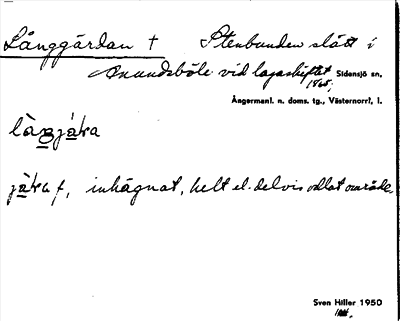 Långgärdan † Stenbunden slått i
Anundsböle vid lagaskiftet Sidensjö sn,
1865,
Ångermanl. n. doms. tg., Västernorrl, l.
jäka f, inhägnat, helt el. delvis odlat område.
Sven Hiller 1950